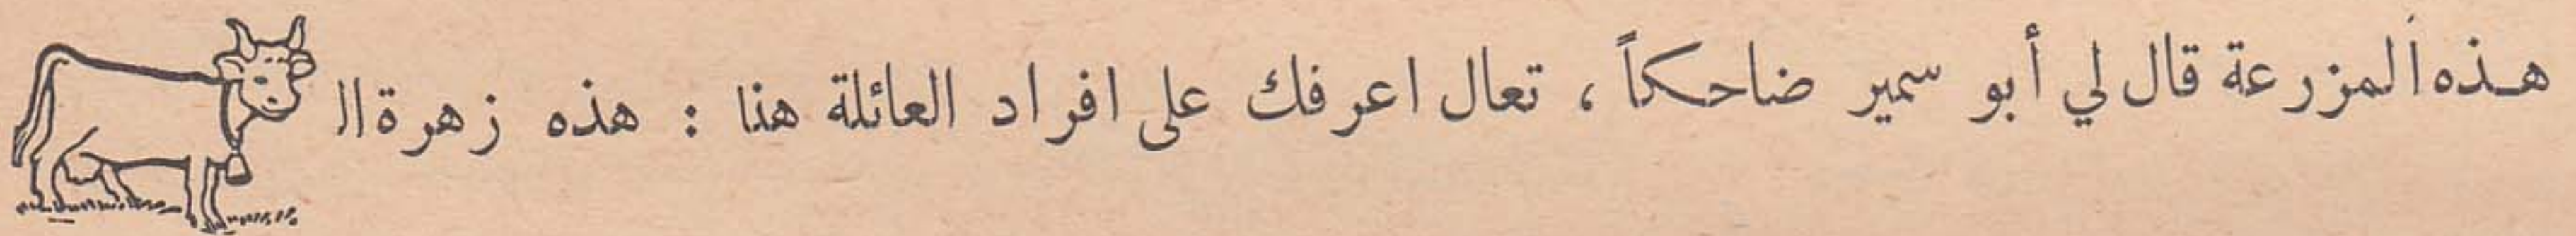 هذه المزرعة قال لي أبو سمير ضاحكاً ، تعال اعرفك على افراد العائلة هنا : هذه زهرة ال